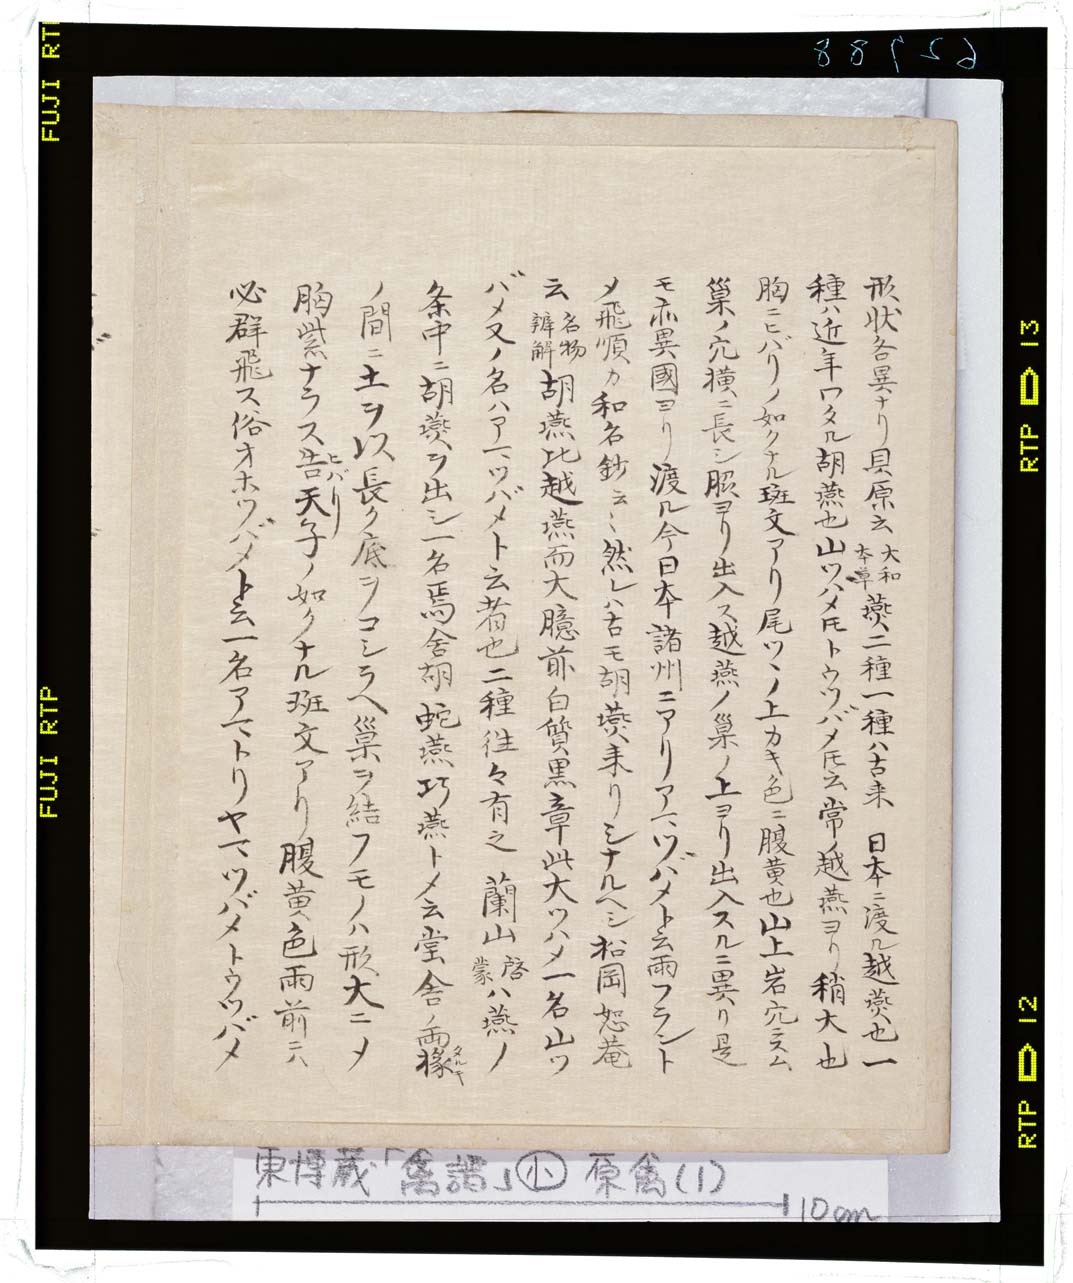 形状各異ナリ貝原云大和本草燕二種一種ハ古来日本ニ渡ル越燕也一
種ハ近年ワタル胡燕也山ツハメ𪜈トウツバメ𪜈云常ノ越燕ヨリ稍大也
胸ニヒバリノ如クナル斑文アリ尾ツヽノ上カキ色ニ腹黄也山上岩穴ニスム
巣ノ穴横ニ長シ脇ヨリ出入ス越燕ノ巣ノ上ヨリ出入スルニ異リ是
モ亦異國ヨリ渡ル今日本諸州ニアリアマツバメト云雨フラント
メ飛順カ和名鈔云々然レハ古モ胡燕来リシナルヘシ松岡恕菴
云名物辨解胡燕比越燕而大臆前白質黒章此大ツハメ一名山ツ
バメ又ノ名ハアマツバメト云者也二種往々有之蘭山啓蒙ハ燕ノ
条中ニ胡燕ヲ出シ一名焉舍胡蛇燕巧燕トメ云堂舍ノ両椽タルキ
ノ間ニ土ヲ以長ク底ヲコシラヘ巣ヲ結フモノハ形大ニメ
胸紫ナラス告天子ヒバリノ如クナル斑文アリ腹黄色雨前ニハ
必群飛ス俗オホツバメト云一名アマトリヤマツバメトウツバメ
東博蔵「禽譜」小 原禽(1)
10cm
62988
FUJI RTP
FUJI RTP
RTP 13
RTP 12